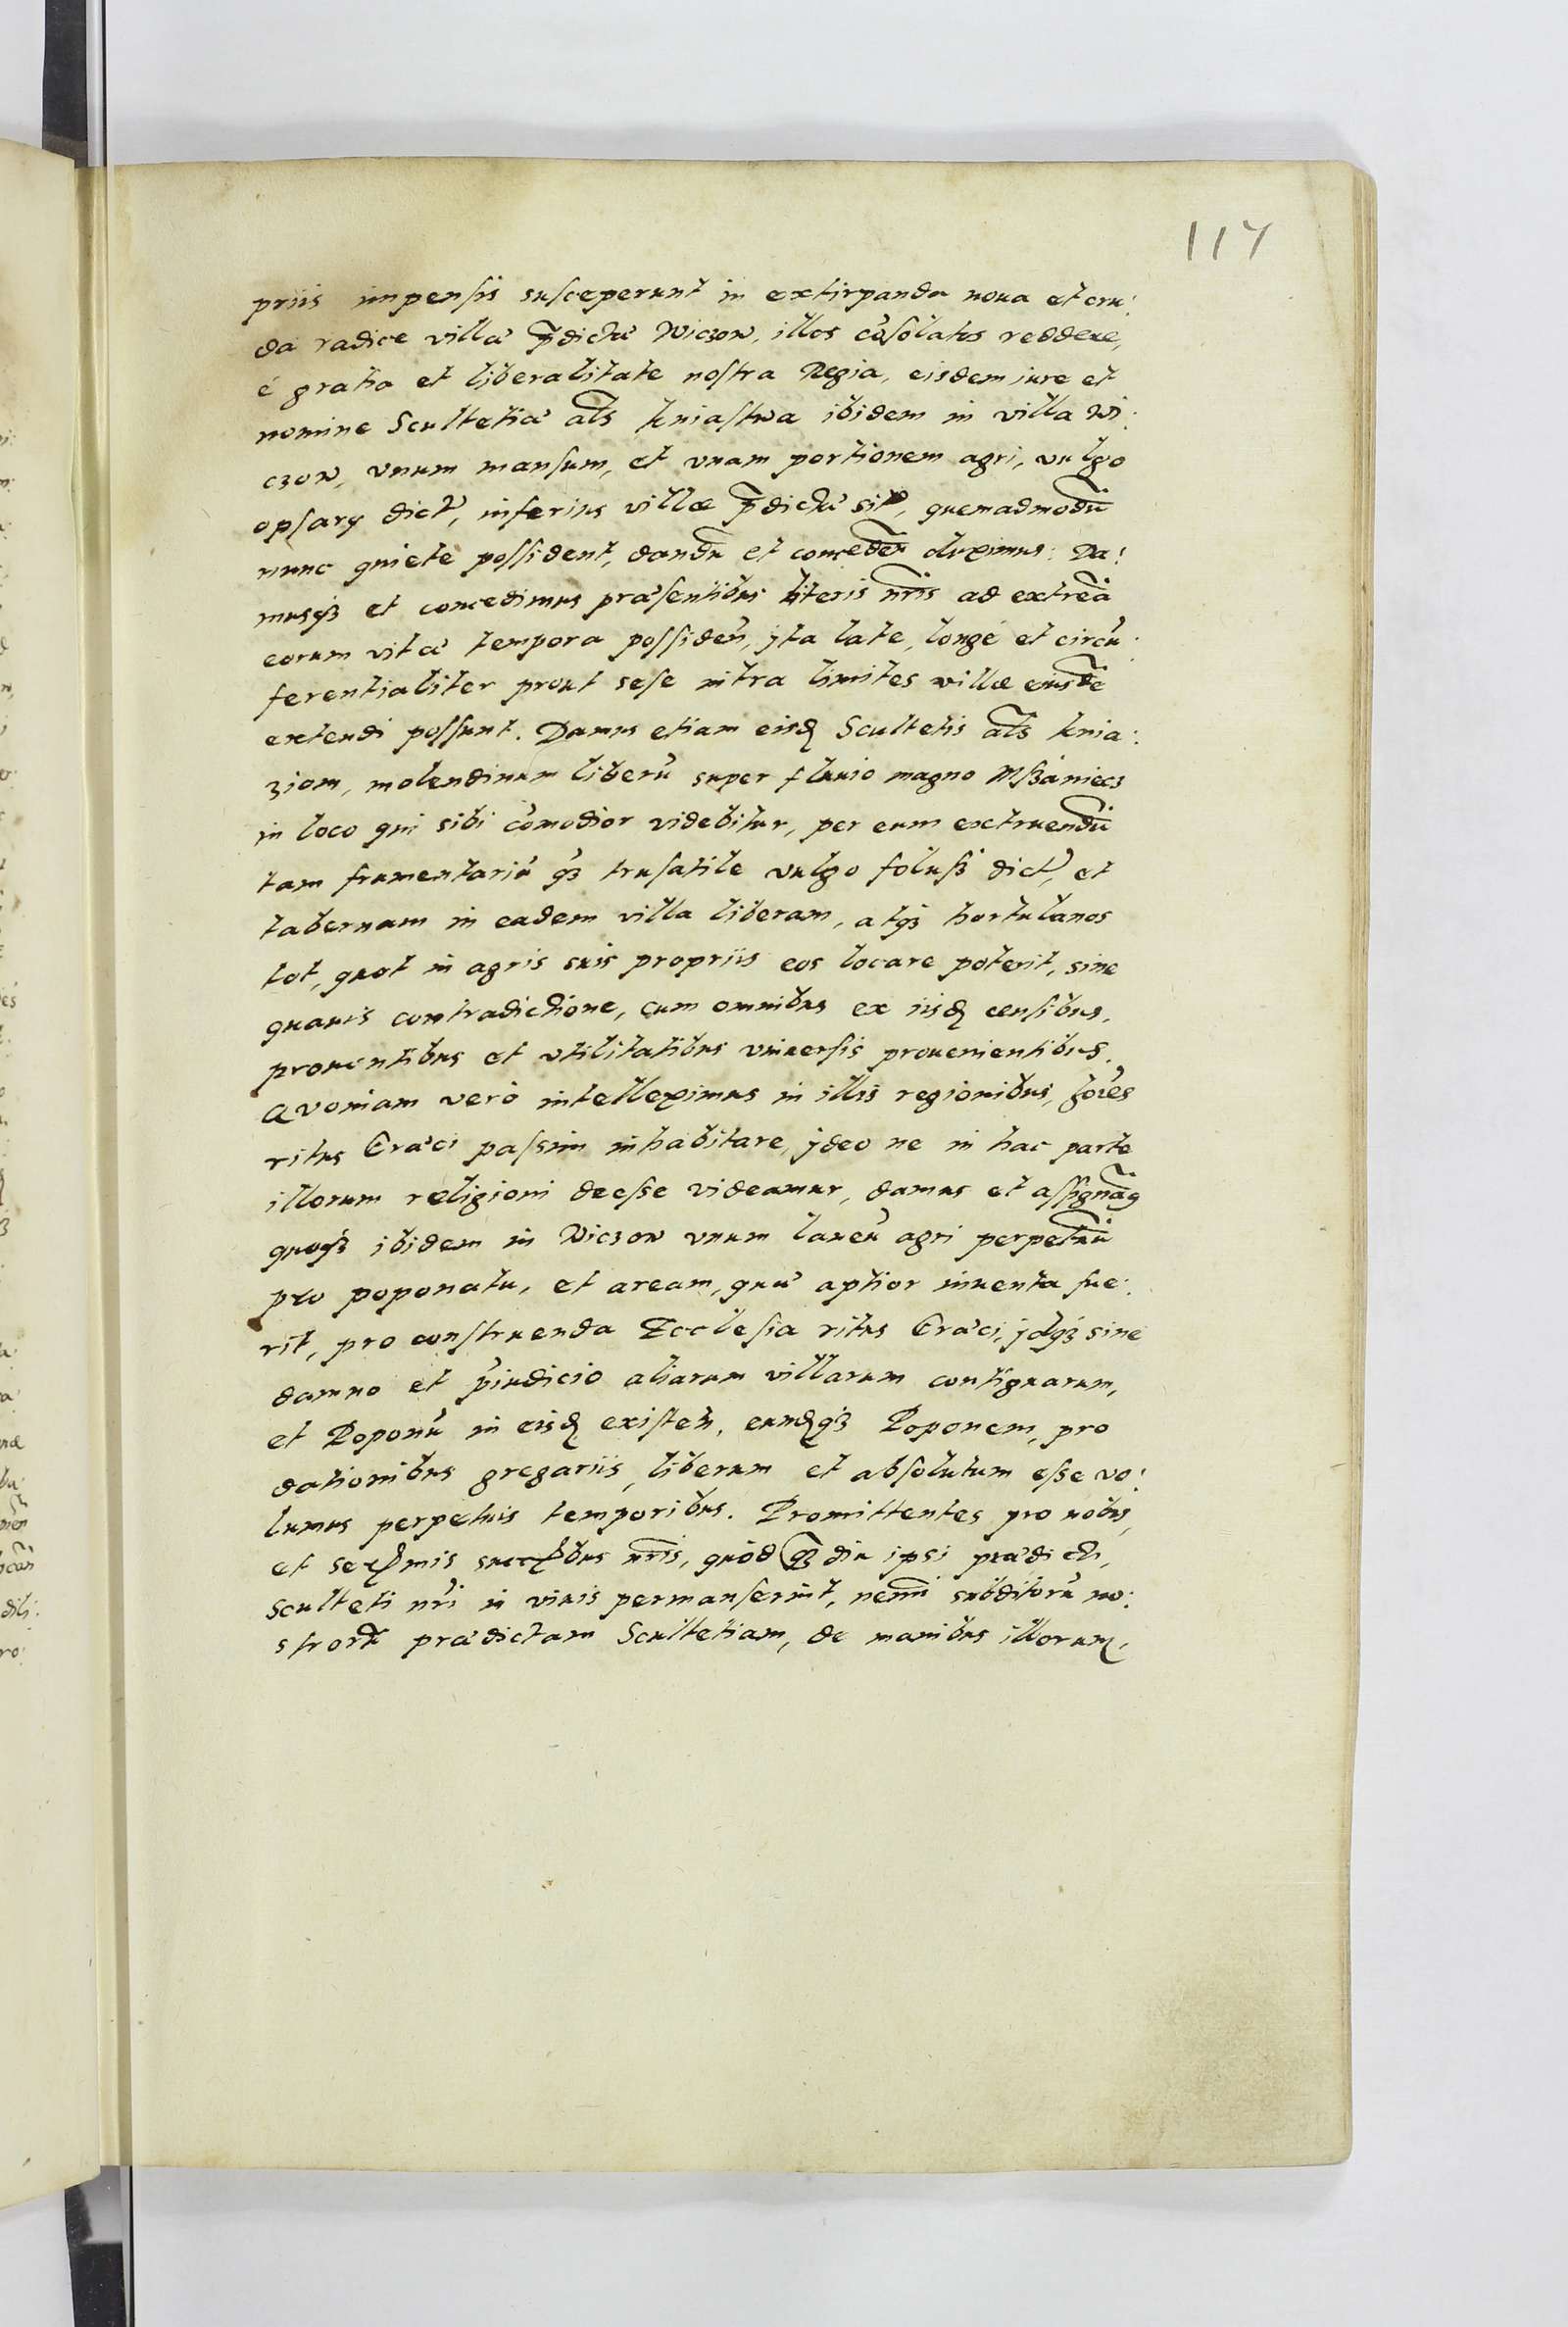 117
priis impensis susceperunt in extirpanda noua et cru:
da radice villæ p̄dictæ Wiczow, illos cōsolatos reddere,
è gratia et liberalitate nostra Regia, eisdem iure et
nomine Scultetiæ als kniastwa ibidem in villa Wi:
czow, vnum mansum, et vnam portionem agri, vulgo
opsary dict, inferius villæ p̄dictæ sit, quemadmodū
nunc quiete possident, dandū et conceden duximus: Da:
musqȝ et concedimus præsentibus literis nr̄is ad extrema
eorum vitæ tempora possideñ, yta late, longè et circū:
ferentialiter prout sese intra limites villæ eiusdē
extendi possunt. Damus etiam eisdē Scultetis als knia:
ziom, molendinum liberū super fluuio magno Mszaniecz
in loco qui sibi cōmodior videbitur, per eum extruendū
tam frumentariū qȝ trusatile vulgo folusz dict, et
tabernam in eadem villa liberam, atqȝ hortulanos
tot, quot in agris suis propriis eos locare poterit, sine
quauis contradictione, cum omnibus ex iisdē censibus,
prouentibus et vtilitatibus vniuersis prouenientibus.
Quoniam verò intelleximus in illis regionibus, hoīes
ritus Græci passim inhabitare, ydeo ne in hac parte
illorum religioni deesse videamur, damus et assignam9
quoqȝ ibidem in Wiczow vnum laneū agri perpetuū
pro poponatu, et aream, quæ aptior inuenta fue:
rit, pro construenda Ecclesia ritus Græci, ydqȝ sine
damno et p̄iudicio aliarum villarum contiguarum,
et Poponū in eisdē existeñ, eundēqȝ Poponem, pro
dationibus gregariis, liberum et absolutum esse vo:
lumus perpetuis temporibus. Promittentes pro nobis,
et Serēmis succēbus nr̄is, quòd qȝ diu ipsi prædicti,
Sculteti nr̄i in viuis permanserint, nemini subditorū no:
strorū prædictam Scultetiam, de manibus illorum,